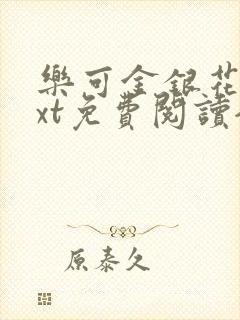 樂可金銀花
xt免費閱讀
原泰久